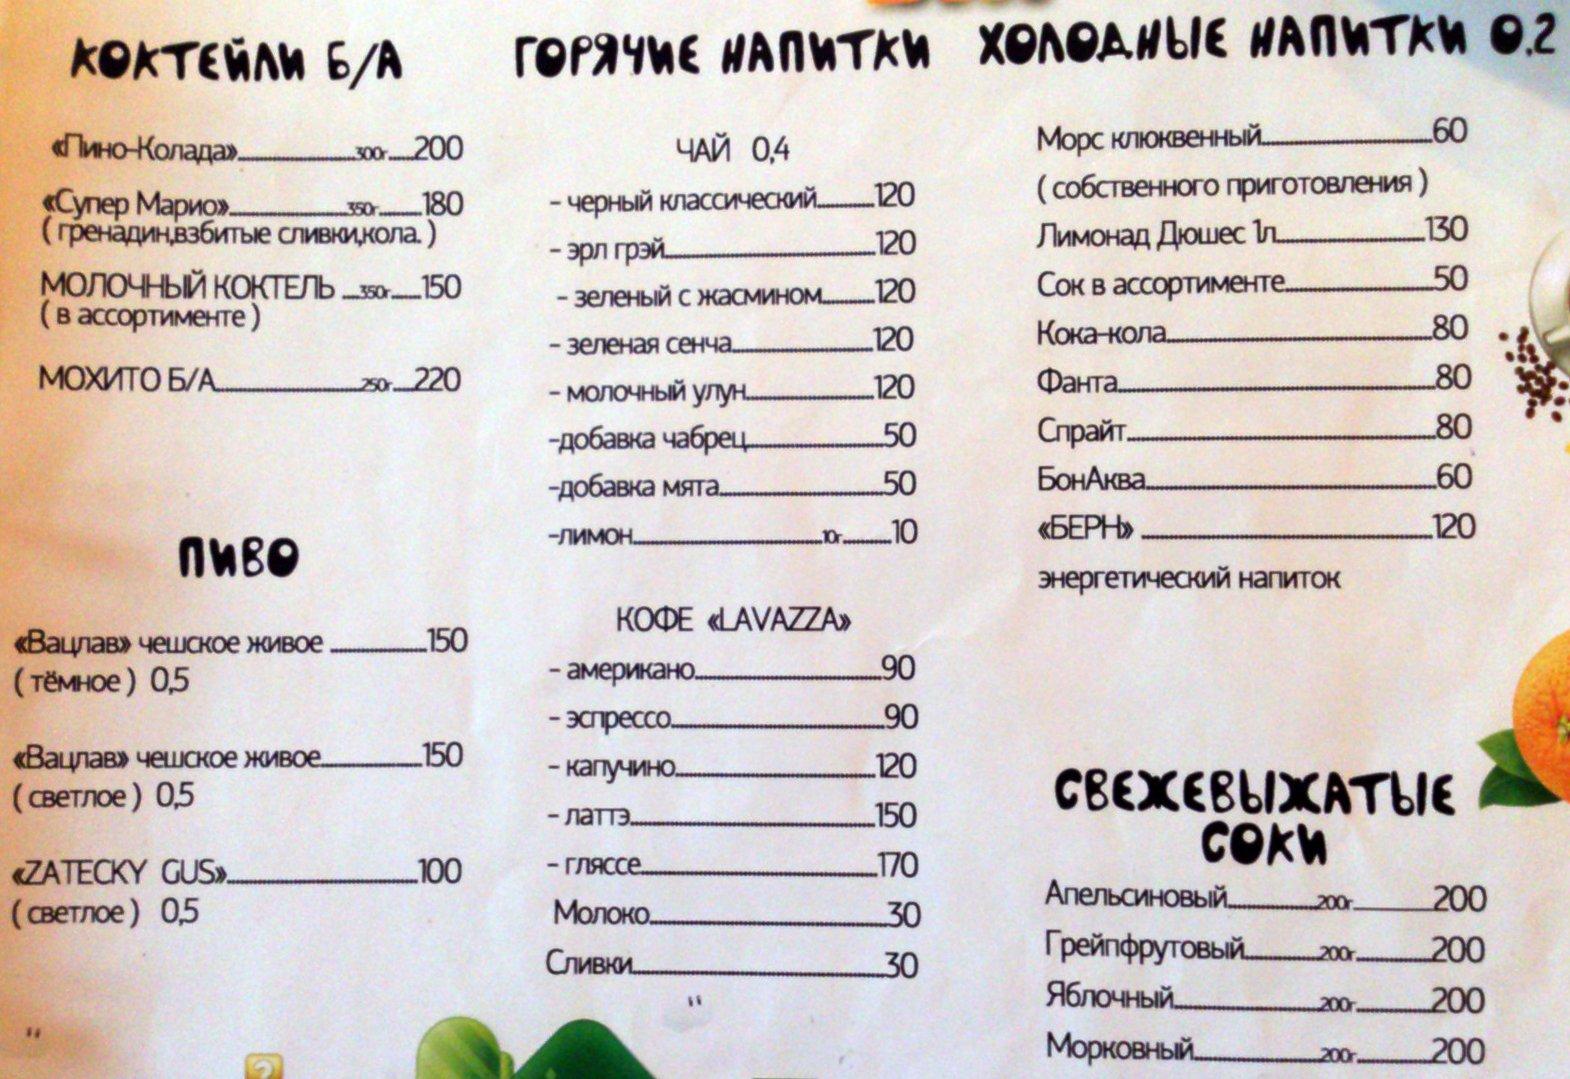 КОКТЕЙЛИ Б/А
«Пино-Колада» 300г 200
«Супер Марио» 350г 180
( гренадин,взбитые сливки,кола. )
МОЛОЧНЫЙ КОКТЕЛЬ 350г 150
( в ассортименте )
МОХИТО Б/А 250г 220
ПИВО
«Вацлав» чешское живое 150
( тёмное ) 0,5
«Вацлав» чешское живое 150
( светлое ) 0,5
«ZATECKY GUS» 100
( светлое ) 0,5
ГОРЯЧИЕ НАПИТКИ
ЧАЙ 0,4
- черный классический 120
- эрл грэй 120
- зеленый с жасмином 120
- зеленая сенча 120
- молочный улун 120
-добавка чабрец 50
-добавка мята 50
-лимон 10г 10
КОФЕ «LAVAZZA»
- американо 90
- эспрессо 90
- капучино 120
- латтэ 150
- гляссе 170
Молоко 30
Сливки 30
ХОЛОДНЫЕ НАПИТКИ 0,2
Морс клюквенный 60
( собственного приготовления )
Лимонад Дюшес 1л 130
Сок в ассортименте 50
Кока-кола 80
Фанта 80
Спрайт 80
БонАква 60
«БЕРН» 120
энергетический напиток
СВЕЖЕВЫЖАТЫЕ
СОКИ
Апельсиновый 200г 200
Грейпфрутовый 200г 200
Яблочный 200г 200
Морковный 200г 200